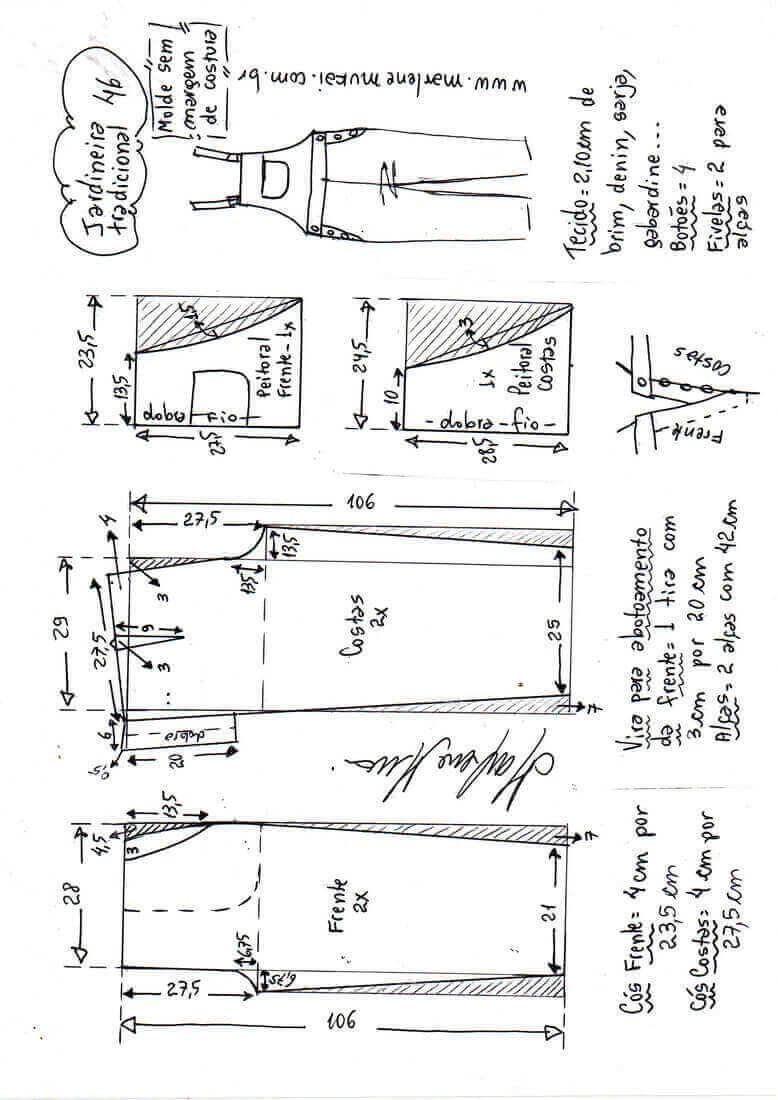 Jardineira 46
tradicional
"Molde sem
margem
de costura"
www.marlenemukai.com.br
Tecido = 2,10 cm de
brim, denin, sarja,
gabardine...
Botões = 4
Fivelas = 2 para
alças
23,5
13,5
1,5
Peitoral
Frente - 1x
dobra
fio
27,5
24,5
10
3
1x
Peitoral
Costas
- dobra - fio -
28,5
Costas
Frente
106
27,5
4
13,5
13,5
3
29
27,5
9
3
Costas
2x
25
6
dobra
20
0,5
7
Vira para abotoamento
da frente = 1 tira com
3 cm por 20 cm
Alças = 2 alças com 42 cm
13,5
4,5
3
28
Frente
2x
21
7
6,75
6,75
27,5
106
Cós Frente = 4 cm por
23,5 cm
Cós Costas = 4 cm por
27,5 cm